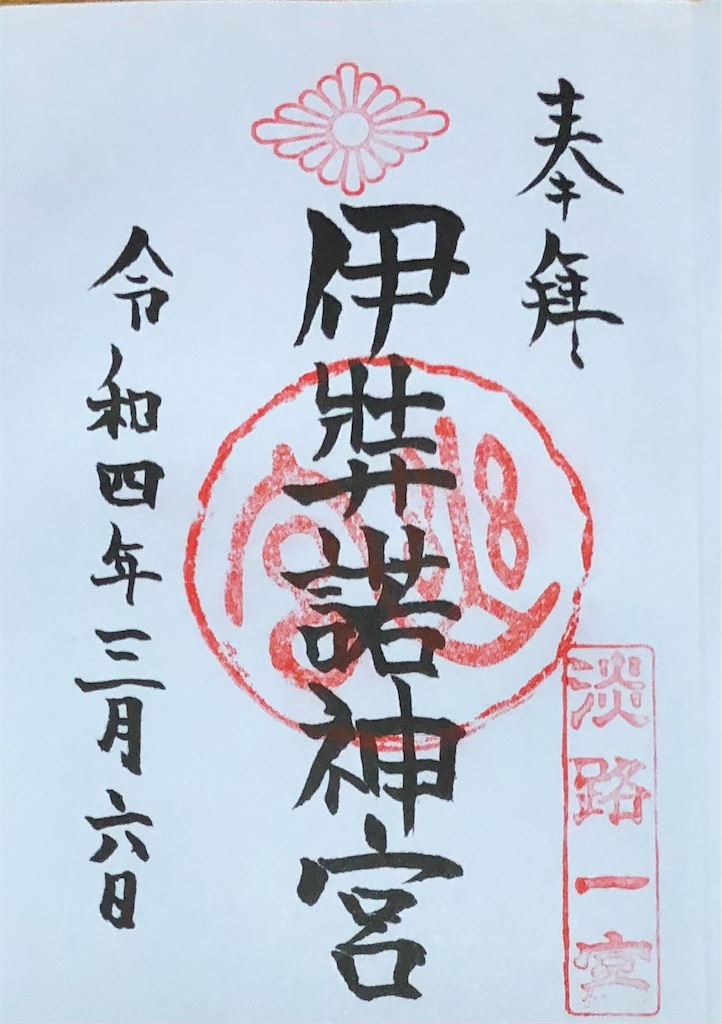 奉拝
伊弉諾神宮
令和四年三月六日
淡路一宮